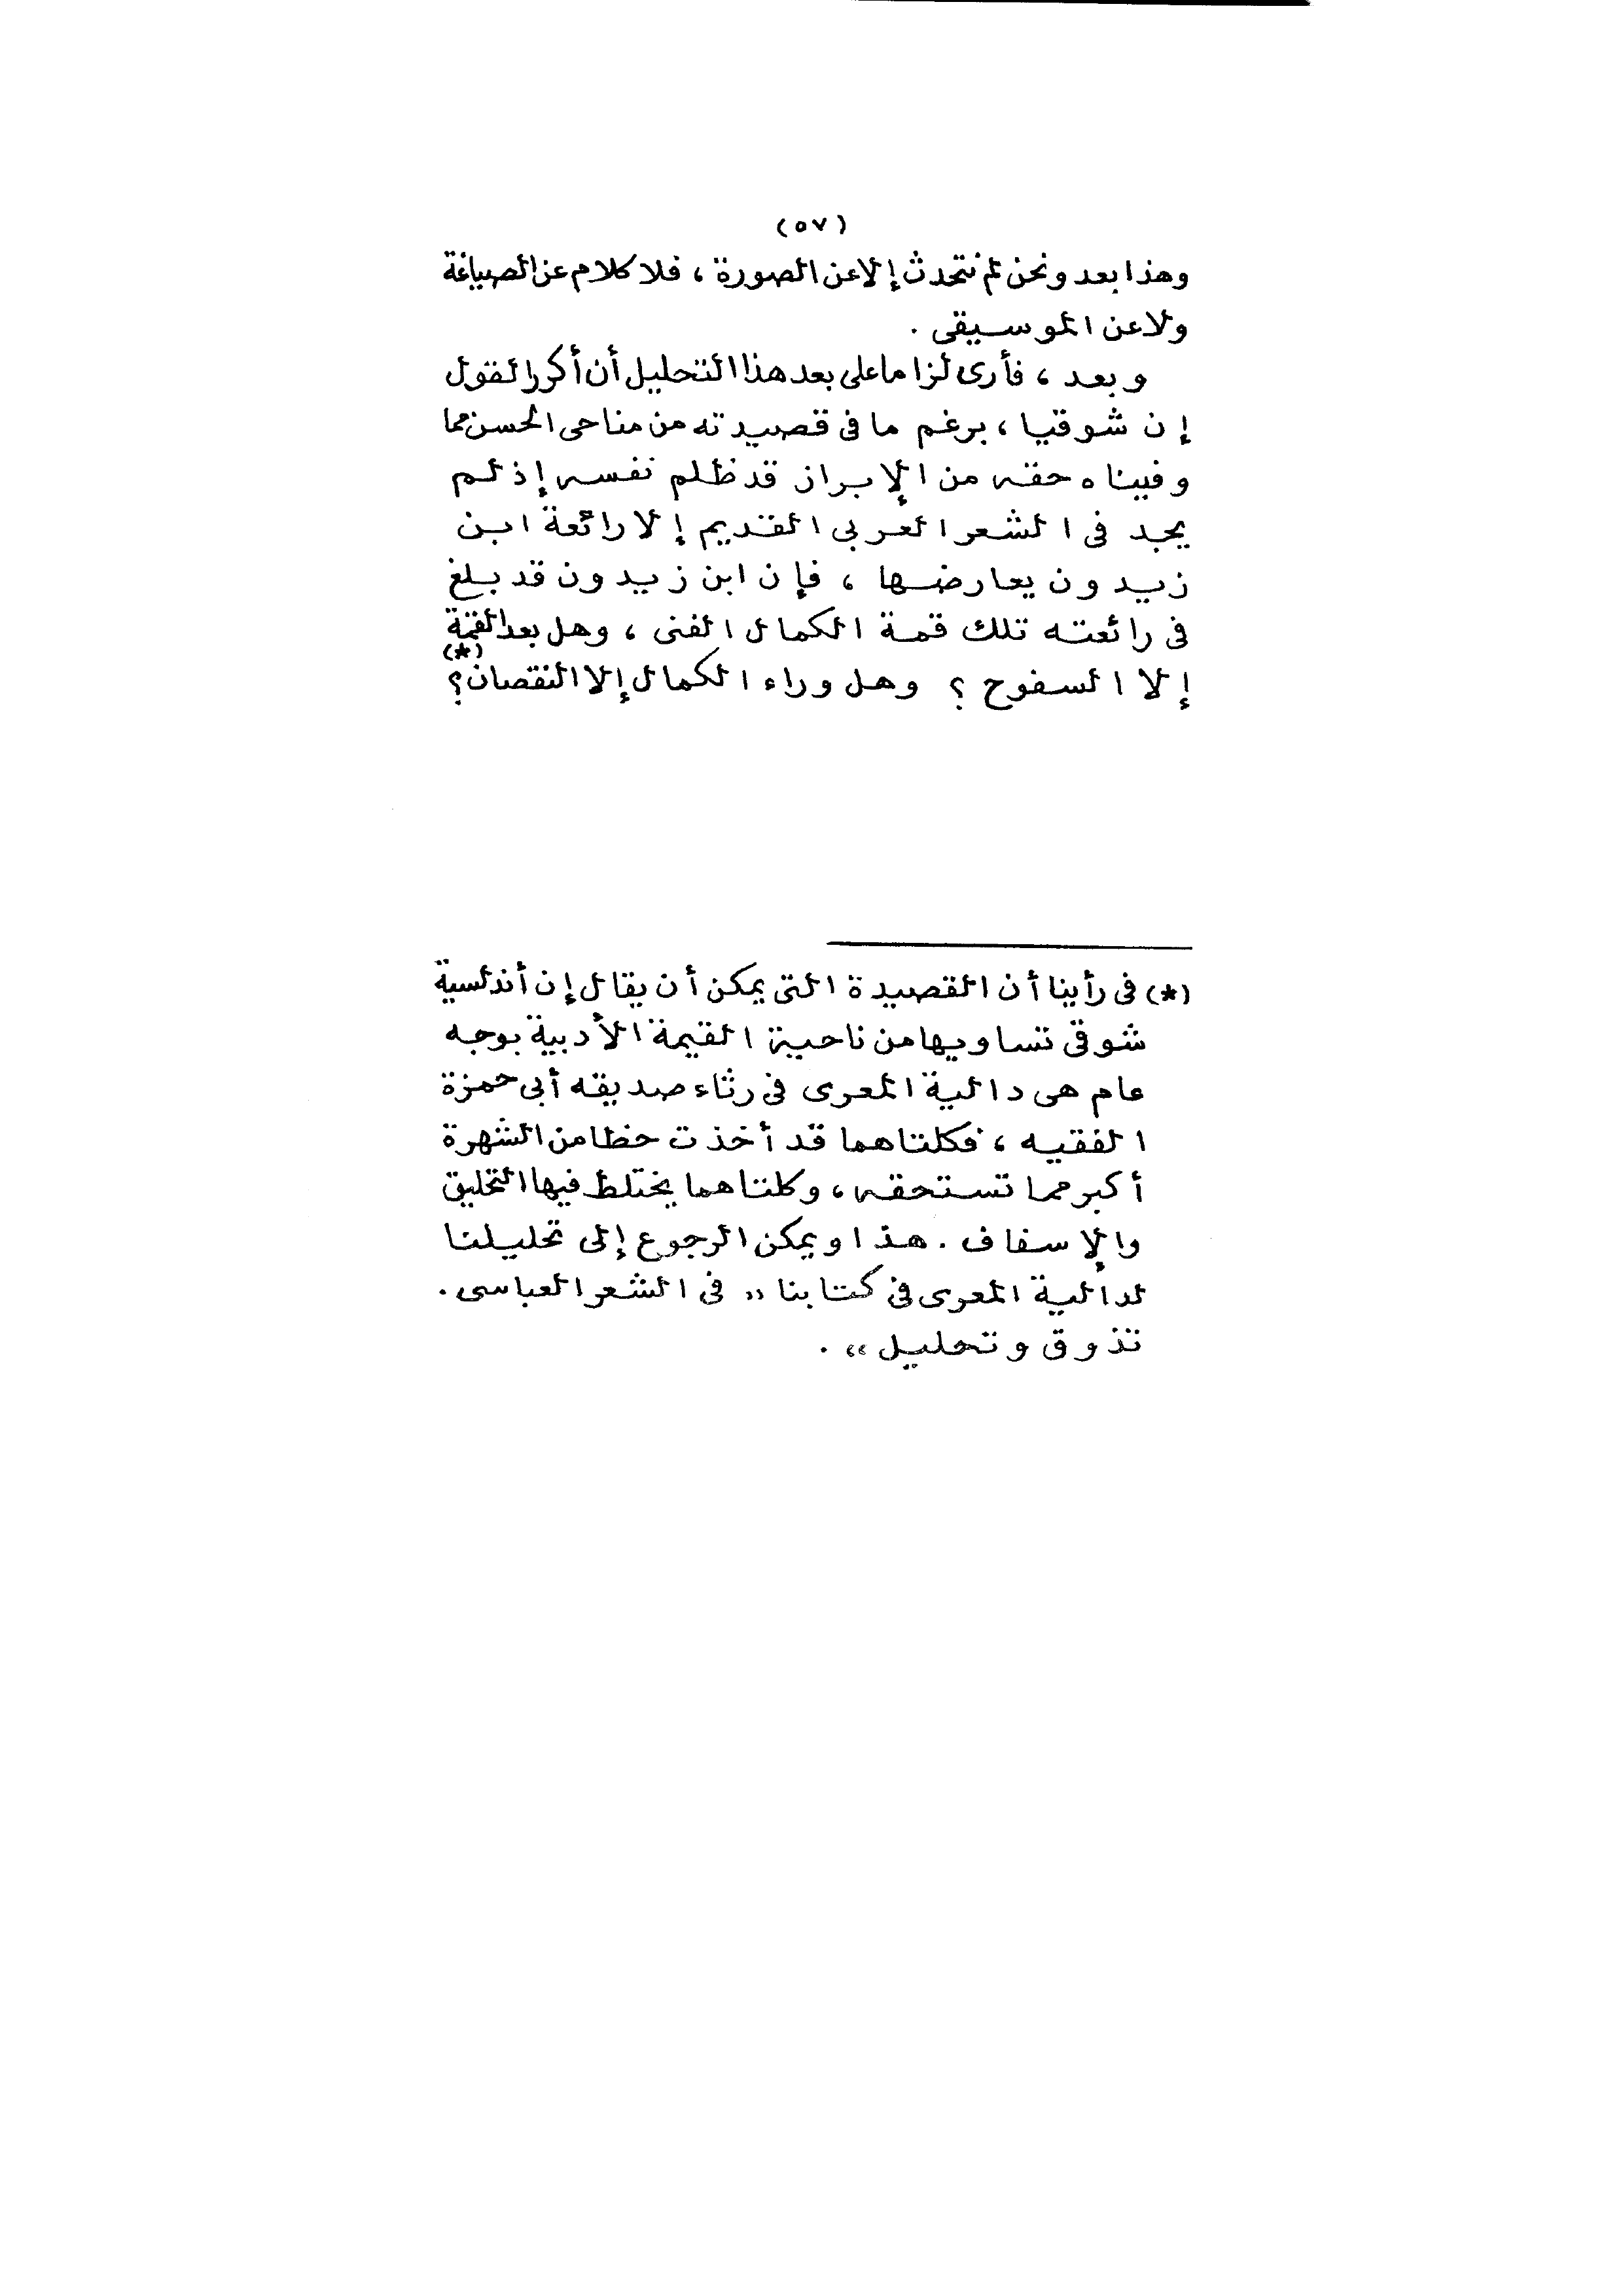 (٥٧)
وهذا بعد ونحن لم نتحدث إلا عن الصورة ، فلا كلام عن الصياغة
ولا عن الموسيقى .
وبعد ، فأرى لزاما على بعد هذا التحليل أن أكرر القول
إن شوقيا ، برغم ما فى قصيدته من مناحى الحسن مما
وفيناه حقه من الإبراز قد ظلم نفسه إذ لم
يجد فى الشعر العربى القديم إلا رائعة ابن
زيدون يعارضها ، فإن ابن زيدون قد بلغ
فى رائعته تلك قمة الكمال الفنى ، وهل بعد القمة
إلا السفوح ؟ وهل وراء الكمال إلا النقصان ؟(*)
(*) فى رأينا أن القصيدة التى يمكن أن يقال إن أندلسية
شوقى تساويها من ناحية القيمة الأدبية بوجه
عام هى دالية المعرى فى رثاء صديقه أبى حمزة
الفقيه ، فكلتاهما قد أخذت حظا من الشهرة
أكبر مما تستحقه ، وكلتاهما يختلط فيها التحليق
والإسفاف . هذا ويمكن الرجوع إلى تحليلنا
لدالية المعرى فى كتابنا „ فى الشعر العباسى .
تذوق وتحليل “ .